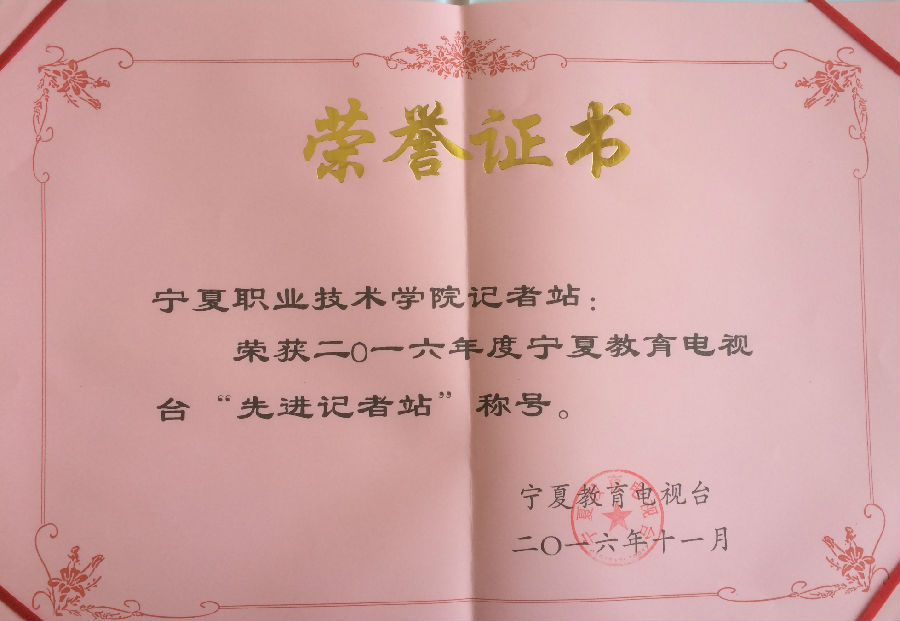 荣誉证书
宁夏职业技术学院记者站：
荣获二〇一六年度宁夏教育电视
台“先进记者站”称号。
宁夏教育电视台
二〇一六年十一月